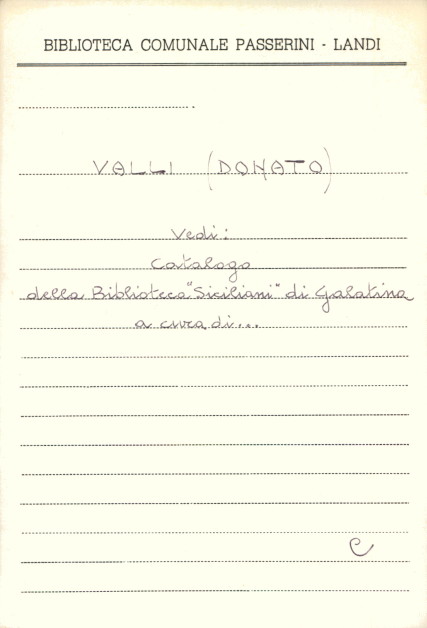 BIBLIOTECA COMUNALE PASSERINI - LANDI
VALLI (DONATO)
Vedi:
Catalogo
della Biblioteca "Siciliani" di Galatina
a cura di...
C